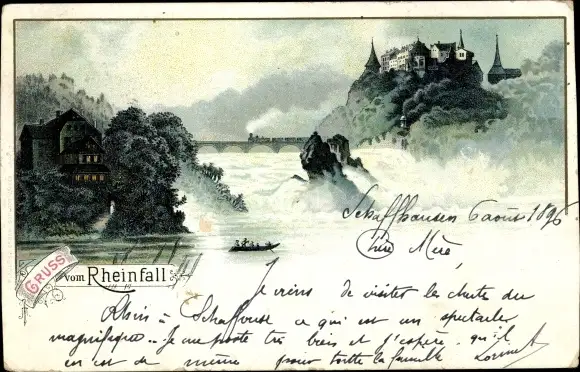 Schaffhausen 6 août 1896
Chère Mère
GRUSS
vom Rheinfall
Je viens de visiter la chute du
Rhin à Schaffouse ce qui est un spectacle
magnifique.. Je me porte très bien et j'espère qu'il
en est de même pour toute la famille